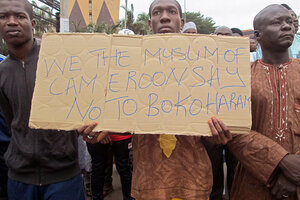 WE THE MUSLIM OF
CAMEROON SAY
NO TO BOKO HARAM